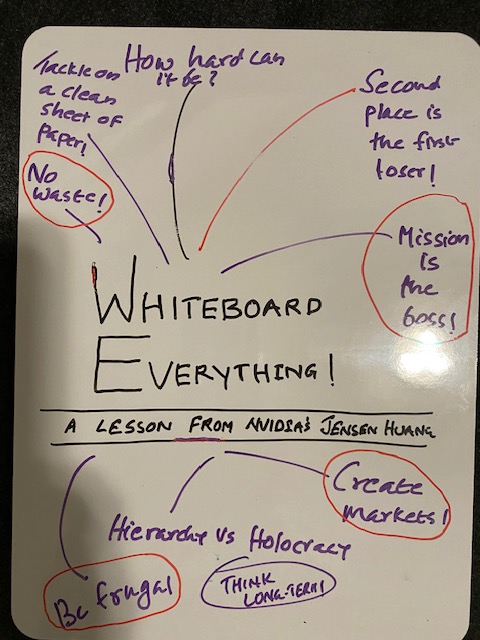 How hard can
it be?
Tackle on
a clean
sheet of
paper!
No
waste!
Second
place is
the first
loser!
Mission
is
the
boss!
WHITEBOARD
EVERYTHING!
A LESSON FROM NVIDIA'S JENSEN HUANG
Create
markets!
Hierarchy vs Holocracy
Be frugal
THINK
LONG-TERM!